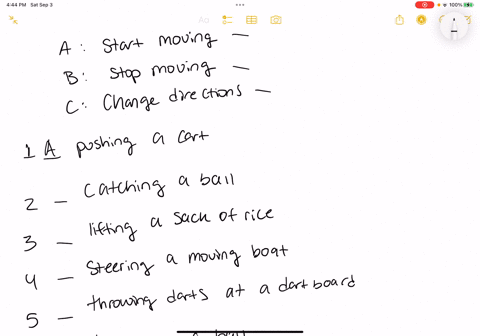 4:44 PM Sat Sep 3
100%
A: Start moving —
B: Stop moving —
C: Change directions —
1 A pushing a cart
2 — Catching a ball
3 — lifting a sack of rice
4 — Steering a moving boat
5 — throwing darts at a dart board
a ball